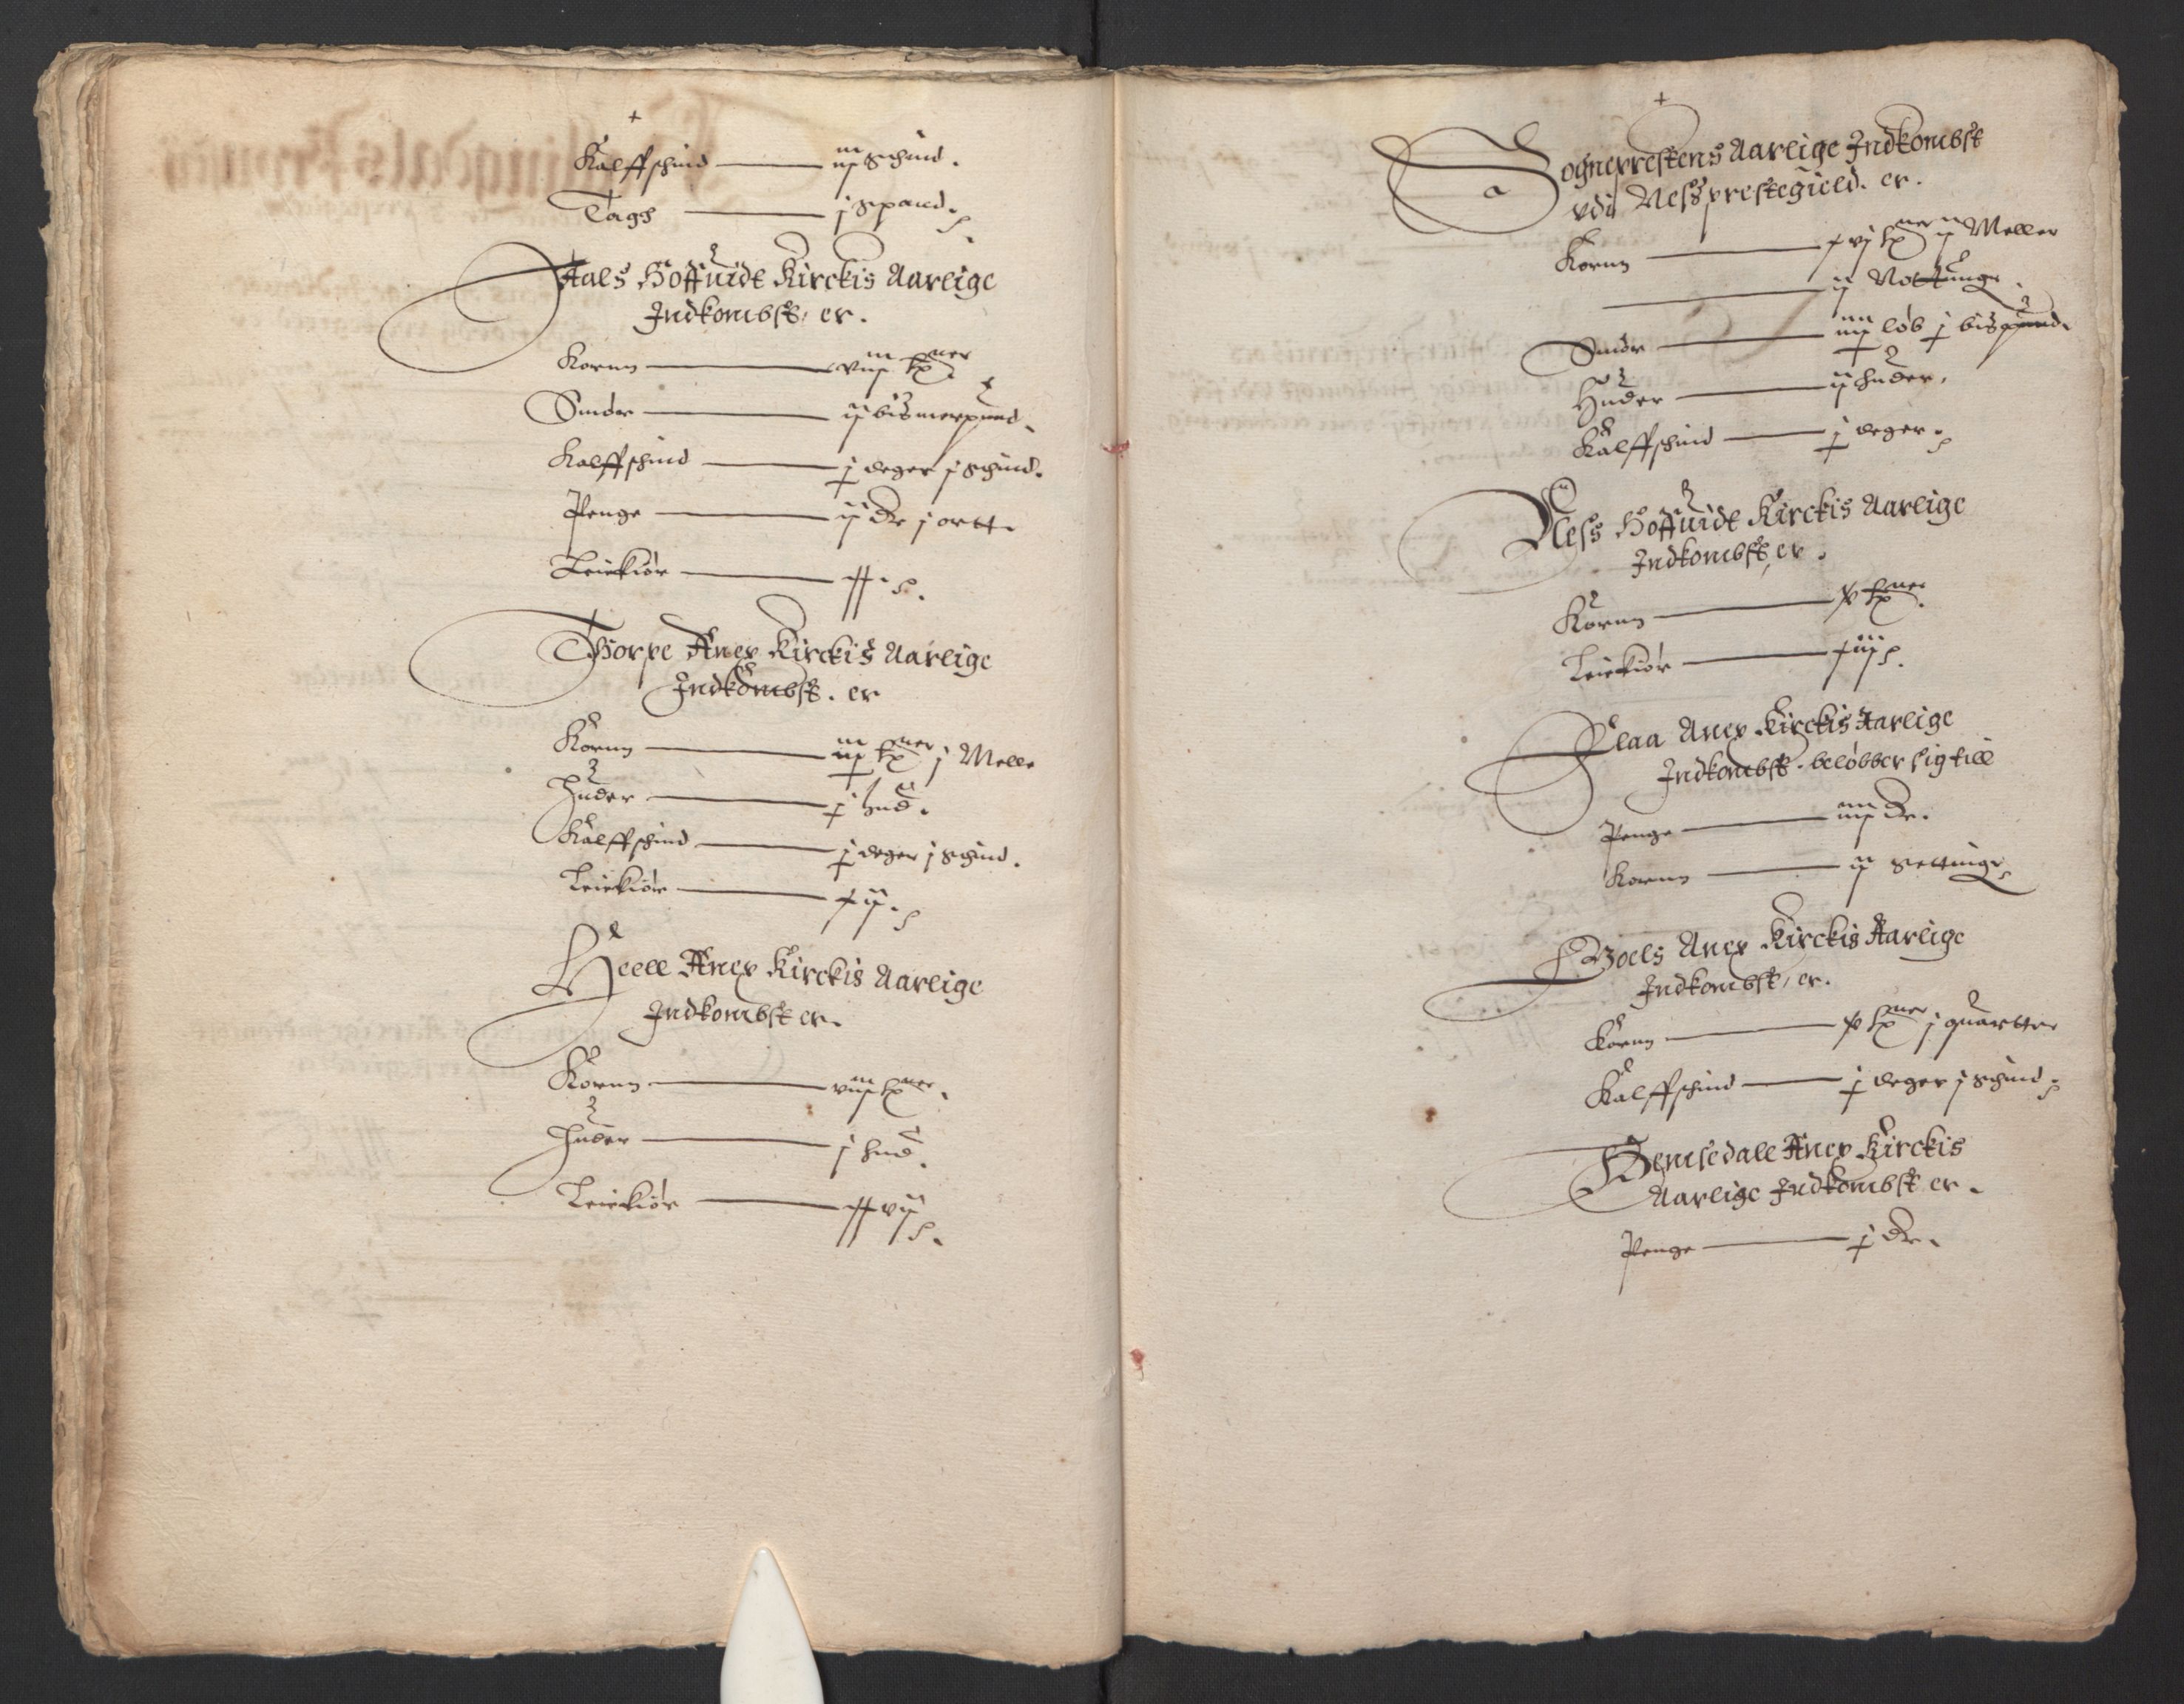 +
Kalffschind — iiij schind.
Tags — j spand.
Aals Hoffuidt Kirckis Aarlige
Indkombst, er.
Kornn — viij tønner
Smør — ij bismerpund.
Kalffschind — j deger j schind.
Penge — ij dr j ortt.
Leiekiør — xx.
Thorpe Anex Kirckis Aarlige
Indkombst. er
Kornn — iiij tønner j Melle
Huder — j hud.
Kalffschind — j deger j schind.
Leiekiør — xij.
Heell Anex Kirckis Aarlige
Indkombst er.
Kornn — viij tønner.
Huder — j hud.
Leiekiør — xxvij
+
Sogneprestens Aarlige Indkombst
vdij Ness prestegield. er.
Kornn — xvj tønner ij Meller
— ij Nottunge.
Smør — iiij løb j bispund.
Huder — ij huder.
Kalffschind — j deger.
Ness Hoffuidt Kirckis Aarlige
Indkombst, er.
Kornn — x tønner.
Leiekiør — xiij.
Flaa Anex Kirckis Aarlige
Indkombst. beløbber sig till
Penge — iiij dr.
Kornn — ij settinge
Goels Anex Kirckis Aarlige
Indkombst, er.
Kornn — x tønner j quartter
Kalffschind — j deger j schind.
Hemsedall Anex Kirckis
Aarlige Indkombst er.
Penge — j dr.